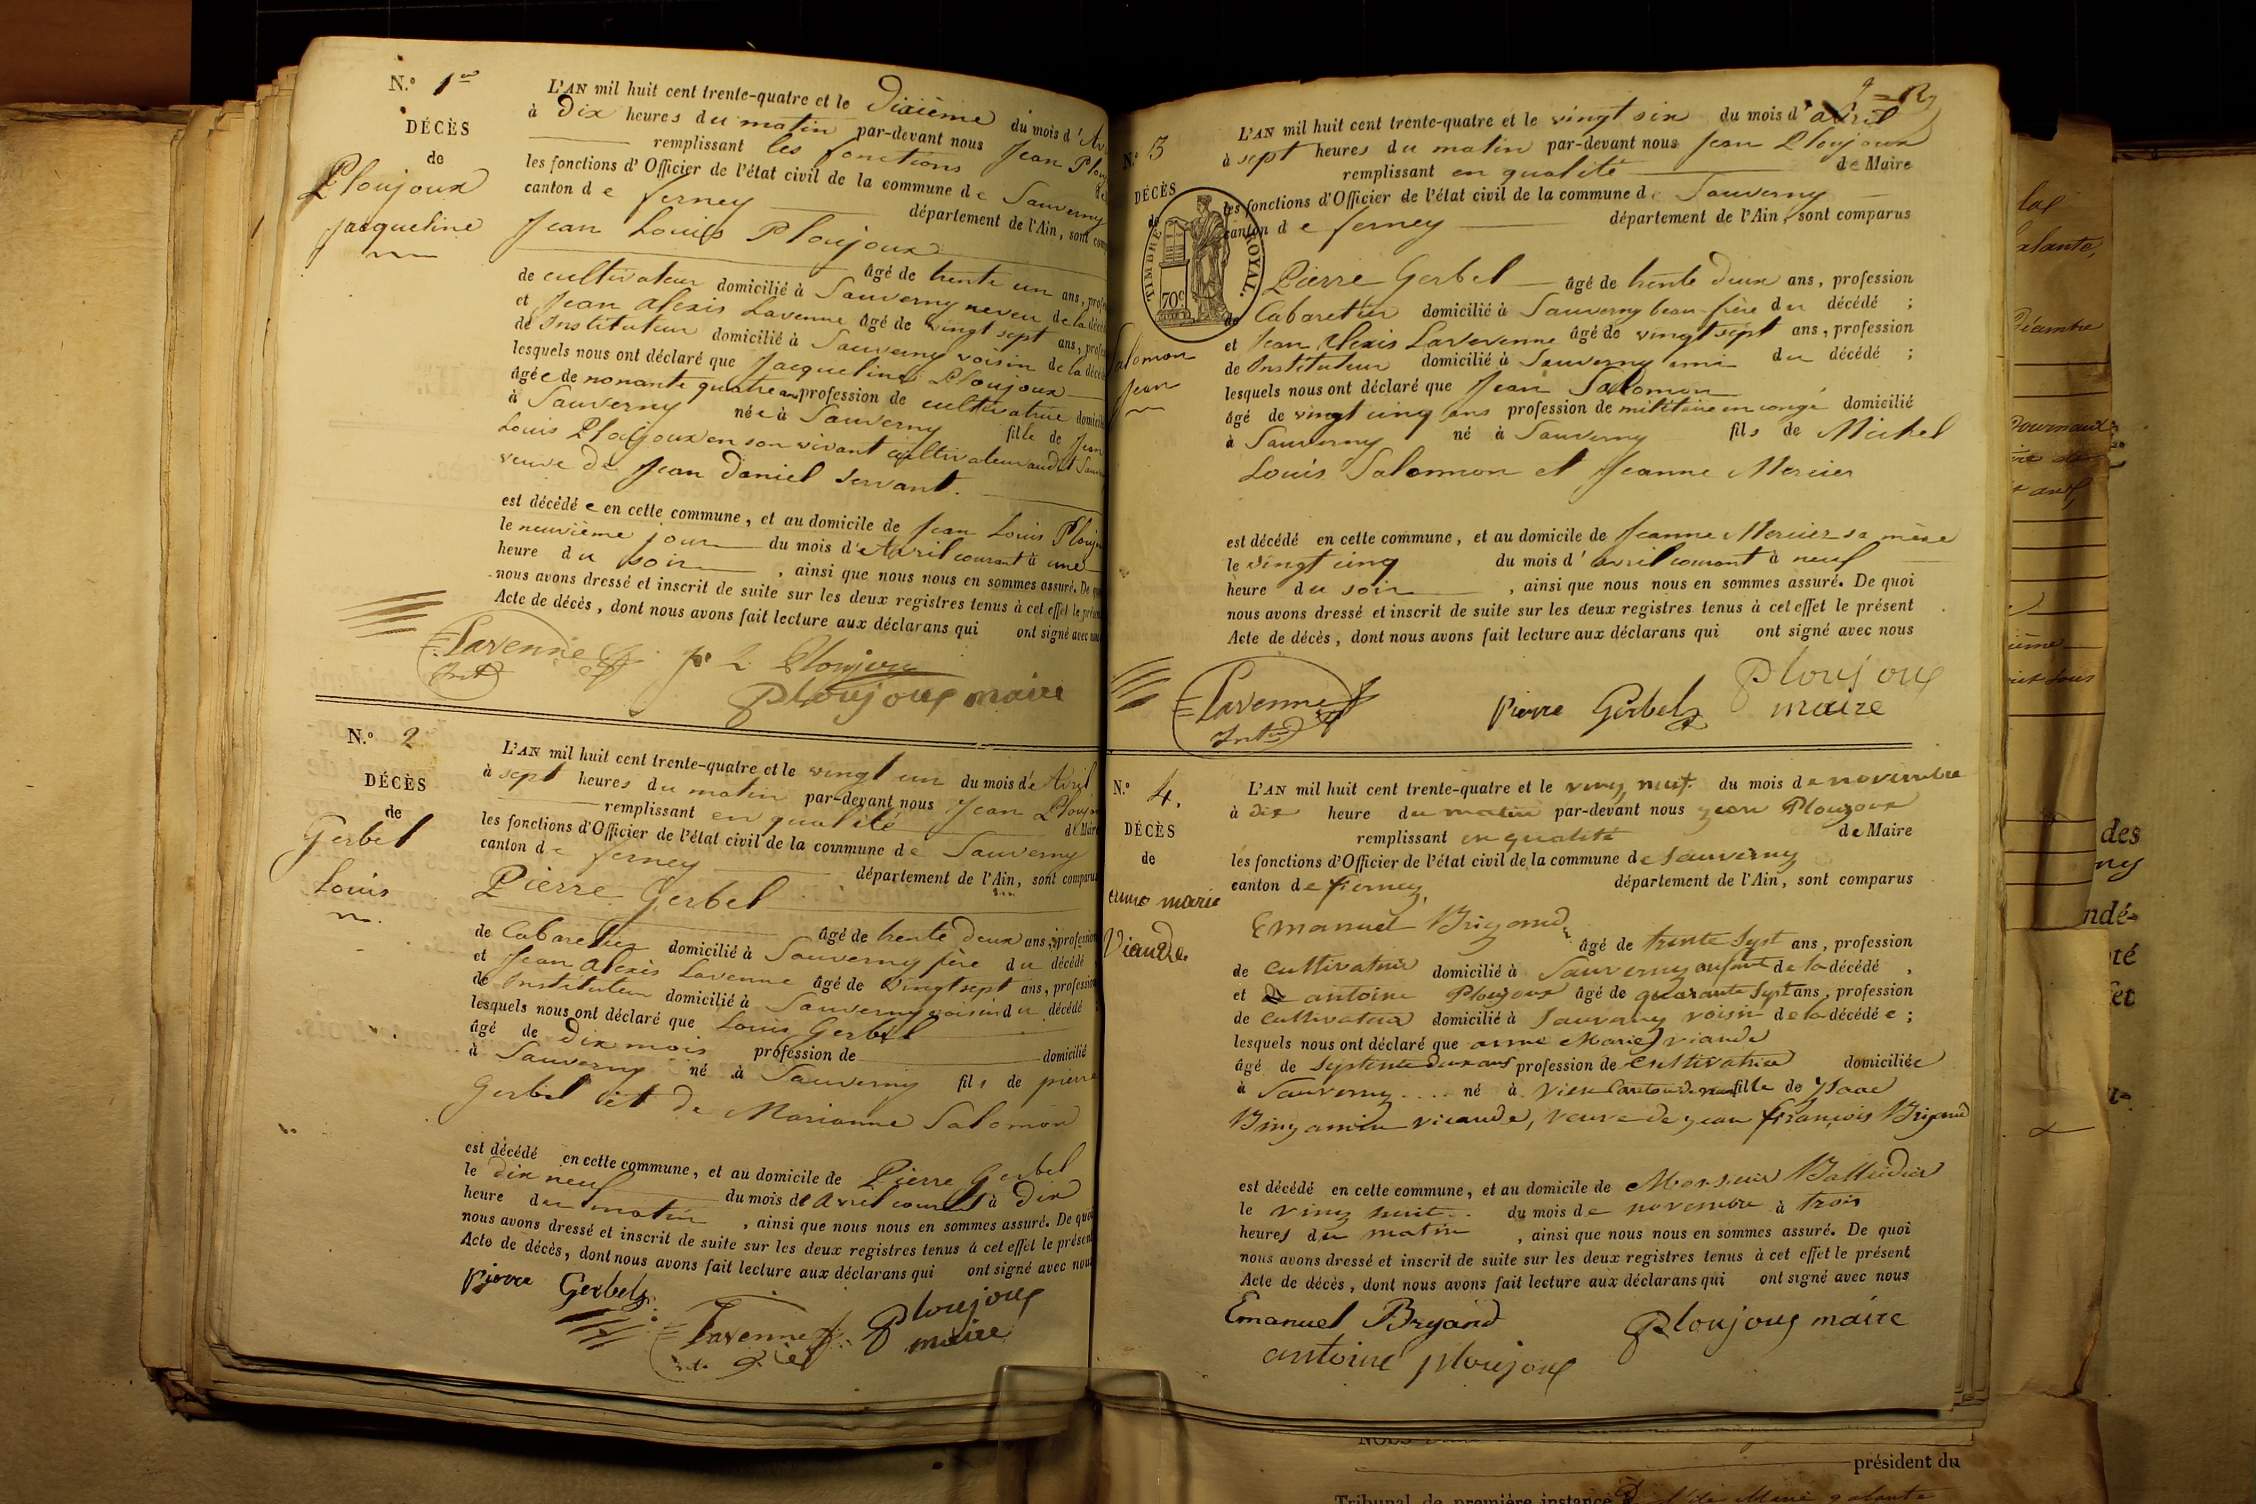 N.º 1er
DÉCÈS
de
Ploujoux
Jacqueline
L'AN mil huit cent trente-quatre et le dixième du mois d'Av
à dix heures du matin par-devant nous Jean Plou
remplissant les fonctions de
les fonctions d'Officier de l'état civil de la commune de Sauverny
canton de ferney département de l'Ain, sont comp
Jean Louis Ploujoux
âgé de trente un ans, profes
de cultivateur domicilié à Sauverny neveu de la décéd
et Jean Alexis Lavenne âgé de vingt sept ans, profes
de Instituteur domicilié à Sauverny voisin de la décéd
lesquels nous ont déclaré que Jacqueline Ploujoux
âgée de nonante quatre ans profession de cultivatrice domicili
à Sauverny née à Sauverny fille de Jean
Louis Ploujoux en son vivant cultivateur audit Sauv
veuve de Jean daniel servant.
est décédée en cette commune, et au domicile de Jean Louis Plouj
le neuvième jour du mois d'Avril courant à une
heure du soir, ainsi que nous nous en sommes assuré. De quoi
nous avons dressé et inscrit de suite sur les deux registres tenus à cet effet le présen
Acte de décès, dont nous avons fait lecture aux déclarans qui ont signé avec nous
Lavenne J. L. Ploujoux
Inst
Ploujoux maire
N.º 2
DÉCÈS
de
Gerbel
Louis
L'AN mil huit cent trente-quatre et le vingt un du mois d'Avril
à sept heures du matin par-devant nous Jean Plouj
remplissant en qualité de Maire
les fonctions d'Officier de l'état civil de la commune de Sauverny
canton de ferney département de l'Ain, sont comparus
Pierre Gerbel
âgé de trente deux ans, profession
de Cabaretier domicilié à Sauverny père du décédé
et Jean Alexis Lavenne âgé de vingt sept ans, profession
de Instituteur domicilié à Sauverny voisin du décédé
lesquels nous ont déclaré que Louis Gerbel
âgé de dix mois profession de domicilié
à Sauverny né à Sauverny fils de pierre
Gerbel et de Marianne Salomon
est décédé en cette commune, et au domicile de Pierre Gerbel
le dix neuf du mois de avril courant à dix
heure du matin, ainsi que nous nous en sommes assuré. De quoi
nous avons dressé et inscrit de suite sur les deux registres tenus à cet effet le présen
Acte de décès, dont nous avons fait lecture aux déclarans qui ont signé avec nous
pierre Gerbel
Lavenne Ploujoux
maire
N.º 3
DÉCÈS
de
TIMBRE ROYAL.
70c
Salomon
Jean
L'AN mil huit cent trente-quatre et le vingt six du mois d'avril
à sept heures du matin par-devant nous Jean Ploujoux
remplissant en qualité de Maire
les fonctions d'Officier de l'état civil de la commune de Sauverny
canton de ferney département de l'Ain, sont comparus
Pierre Gerbel âgé de trente deux ans, profession
de Cabaretier domicilié à Sauverny beau-frère du décédé ;
et Jean Alexis Lavenne âgé de vingt sept ans, profession
de Instituteur domicilié à Sauverny ami du décédé ;
lesquels nous ont déclaré que Jean Salomon
âgé de vingt cinq ans profession de militaire en congé domicilié
à Sauverny né à Sauverny fils de Michel
Louis Salomon et Jeanne Mercier
est décédé en cette commune, et au domicile de Jeanne Mercier sa mère
le vingt cinq du mois d'avril courant à neuf
heure du soir, ainsi que nous nous en sommes assuré. De quoi
nous avons dressé et inscrit de suite sur les deux registres tenus à cet effet le présent
Acte de décès, dont nous avons fait lecture aux déclarans qui ont signé avec nous
Lavenne pierre Gerbel Ploujoux
maire
N.º 4.
DÉCÈS
de
anne marie
Viande.
L'AN mil huit cent trente-quatre et le ving nuit du mois de novembre
à dix heure du matin par-devant nous jean Ploujoux
remplissant en qualité de Maire
les fonctions d'Officier de l'état civil de la commune de Sauverny
canton de fierney, département de l'Ain, sont comparus
Emanuel Brigand
âgé de trente sept ans, profession
de cultivateur domicilié à Sauverny enfant de la décédé ,
et antoine Ploujoux âgé de quarante sept ans, profession
de cultivateur domicilié à Sauverny voisin de la décédée ;
lesquels nous ont déclaré que anne Marie viande
âgé de septente deux ans profession de cultivatrice domiciliée
à Sauverny .... né à fille de ysaac
viande, veuve de jean françois Brigand
est décédé en cette commune, et au domicile de Monsieur
le ving nuit du mois de novembre à trois
heures du matin, ainsi que nous nous en sommes assuré. De quoi
nous avons dressé et inscrit de suite sur les deux registres tenus à cet effet le présent
Acte de décès, dont nous avons fait lecture aux déclarans qui ont signé avec nous
Emanuel Brigand Ploujoux maire
antoine ploujoux
des
président du
Tribunal de première instance